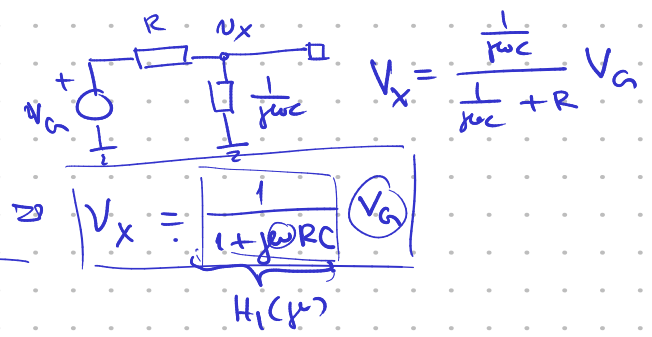 R
υX
+
υG
1/jωC
V_X = (1/jωC)/(1/jωC + R) V_G
⇒ V_X = 1/(1 + jωRC) V_G
H_1(jω)